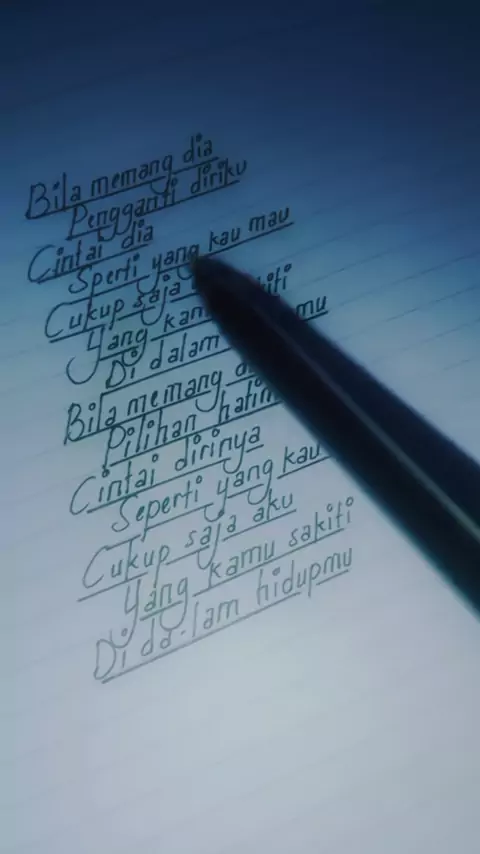 Bila memang dia
Pengganti diriku
Cintai dia
Sperti yang kau mau
Cukup saja
Yang
Di dalam
Bila memang
Pilihan
Cintai dirinya
Seperti yang kau
Cukup saja aku
Yang kamu sakiti
Di da-lam hidupmu